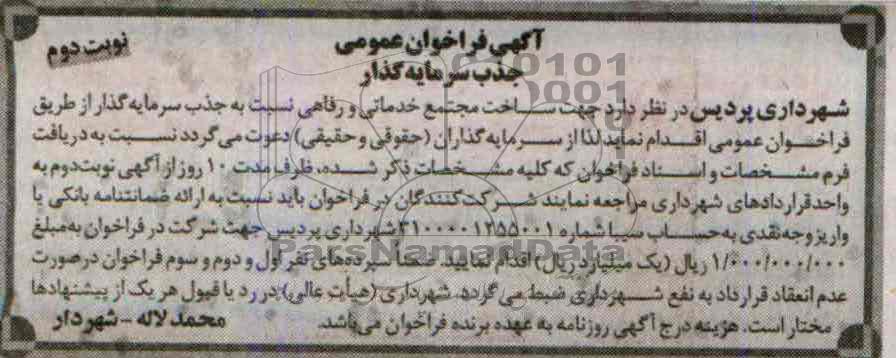 آگهی فراخوان عمومی
نوبت دوم
جذب سرمایه گذار
شهرداری پردیس در نظر دارد جهت ساخت مجتمع خدماتی و رفاهی نسبت به جذب سرمایه گذار از طریق
فراخوان عمومی اقدام نماید لذا از سرمایه گذاران (حقوقی و حقیقی) دعوت می گردد نسبت به دریافت
فرم مشخصات و اسناد فراخوان که کلیه مشخصات ذکر شده، ظرف مدت ۱۰ روز از آگهی نوبت دوم به
واحد قراردادهای شهرداری مراجعه نمایند شرکت کنندگان در فراخوان باید نسبت به ارائه ضمانتنامه بانکی یا
واریز وجه نقدی به حساب سیبا شماره ۳۱۰۰۰۰۱۲۵۵۰۰۱ شهرداری پردیس جهت شرکت در فراخوان به مبلغ
۱/۰۰۰/۰۰۰/۰۰۰ ریال (یک میلیارد ریال) اقدام نمایید. ضمنا سپرده های نفر اول و دوم و سوم فراخوان در صورت
عدم انعقاد قرارداد به نفع شهرداری ضبط می گردد. شهرداری (هیأت عالی) در رد یا قبول هر یک از پیشنهادها
مختار است. هزینه درج آگهی روزنامه به عهده برنده فراخوان می باشد.
محمد لاله - شهردار
ParsNamadData